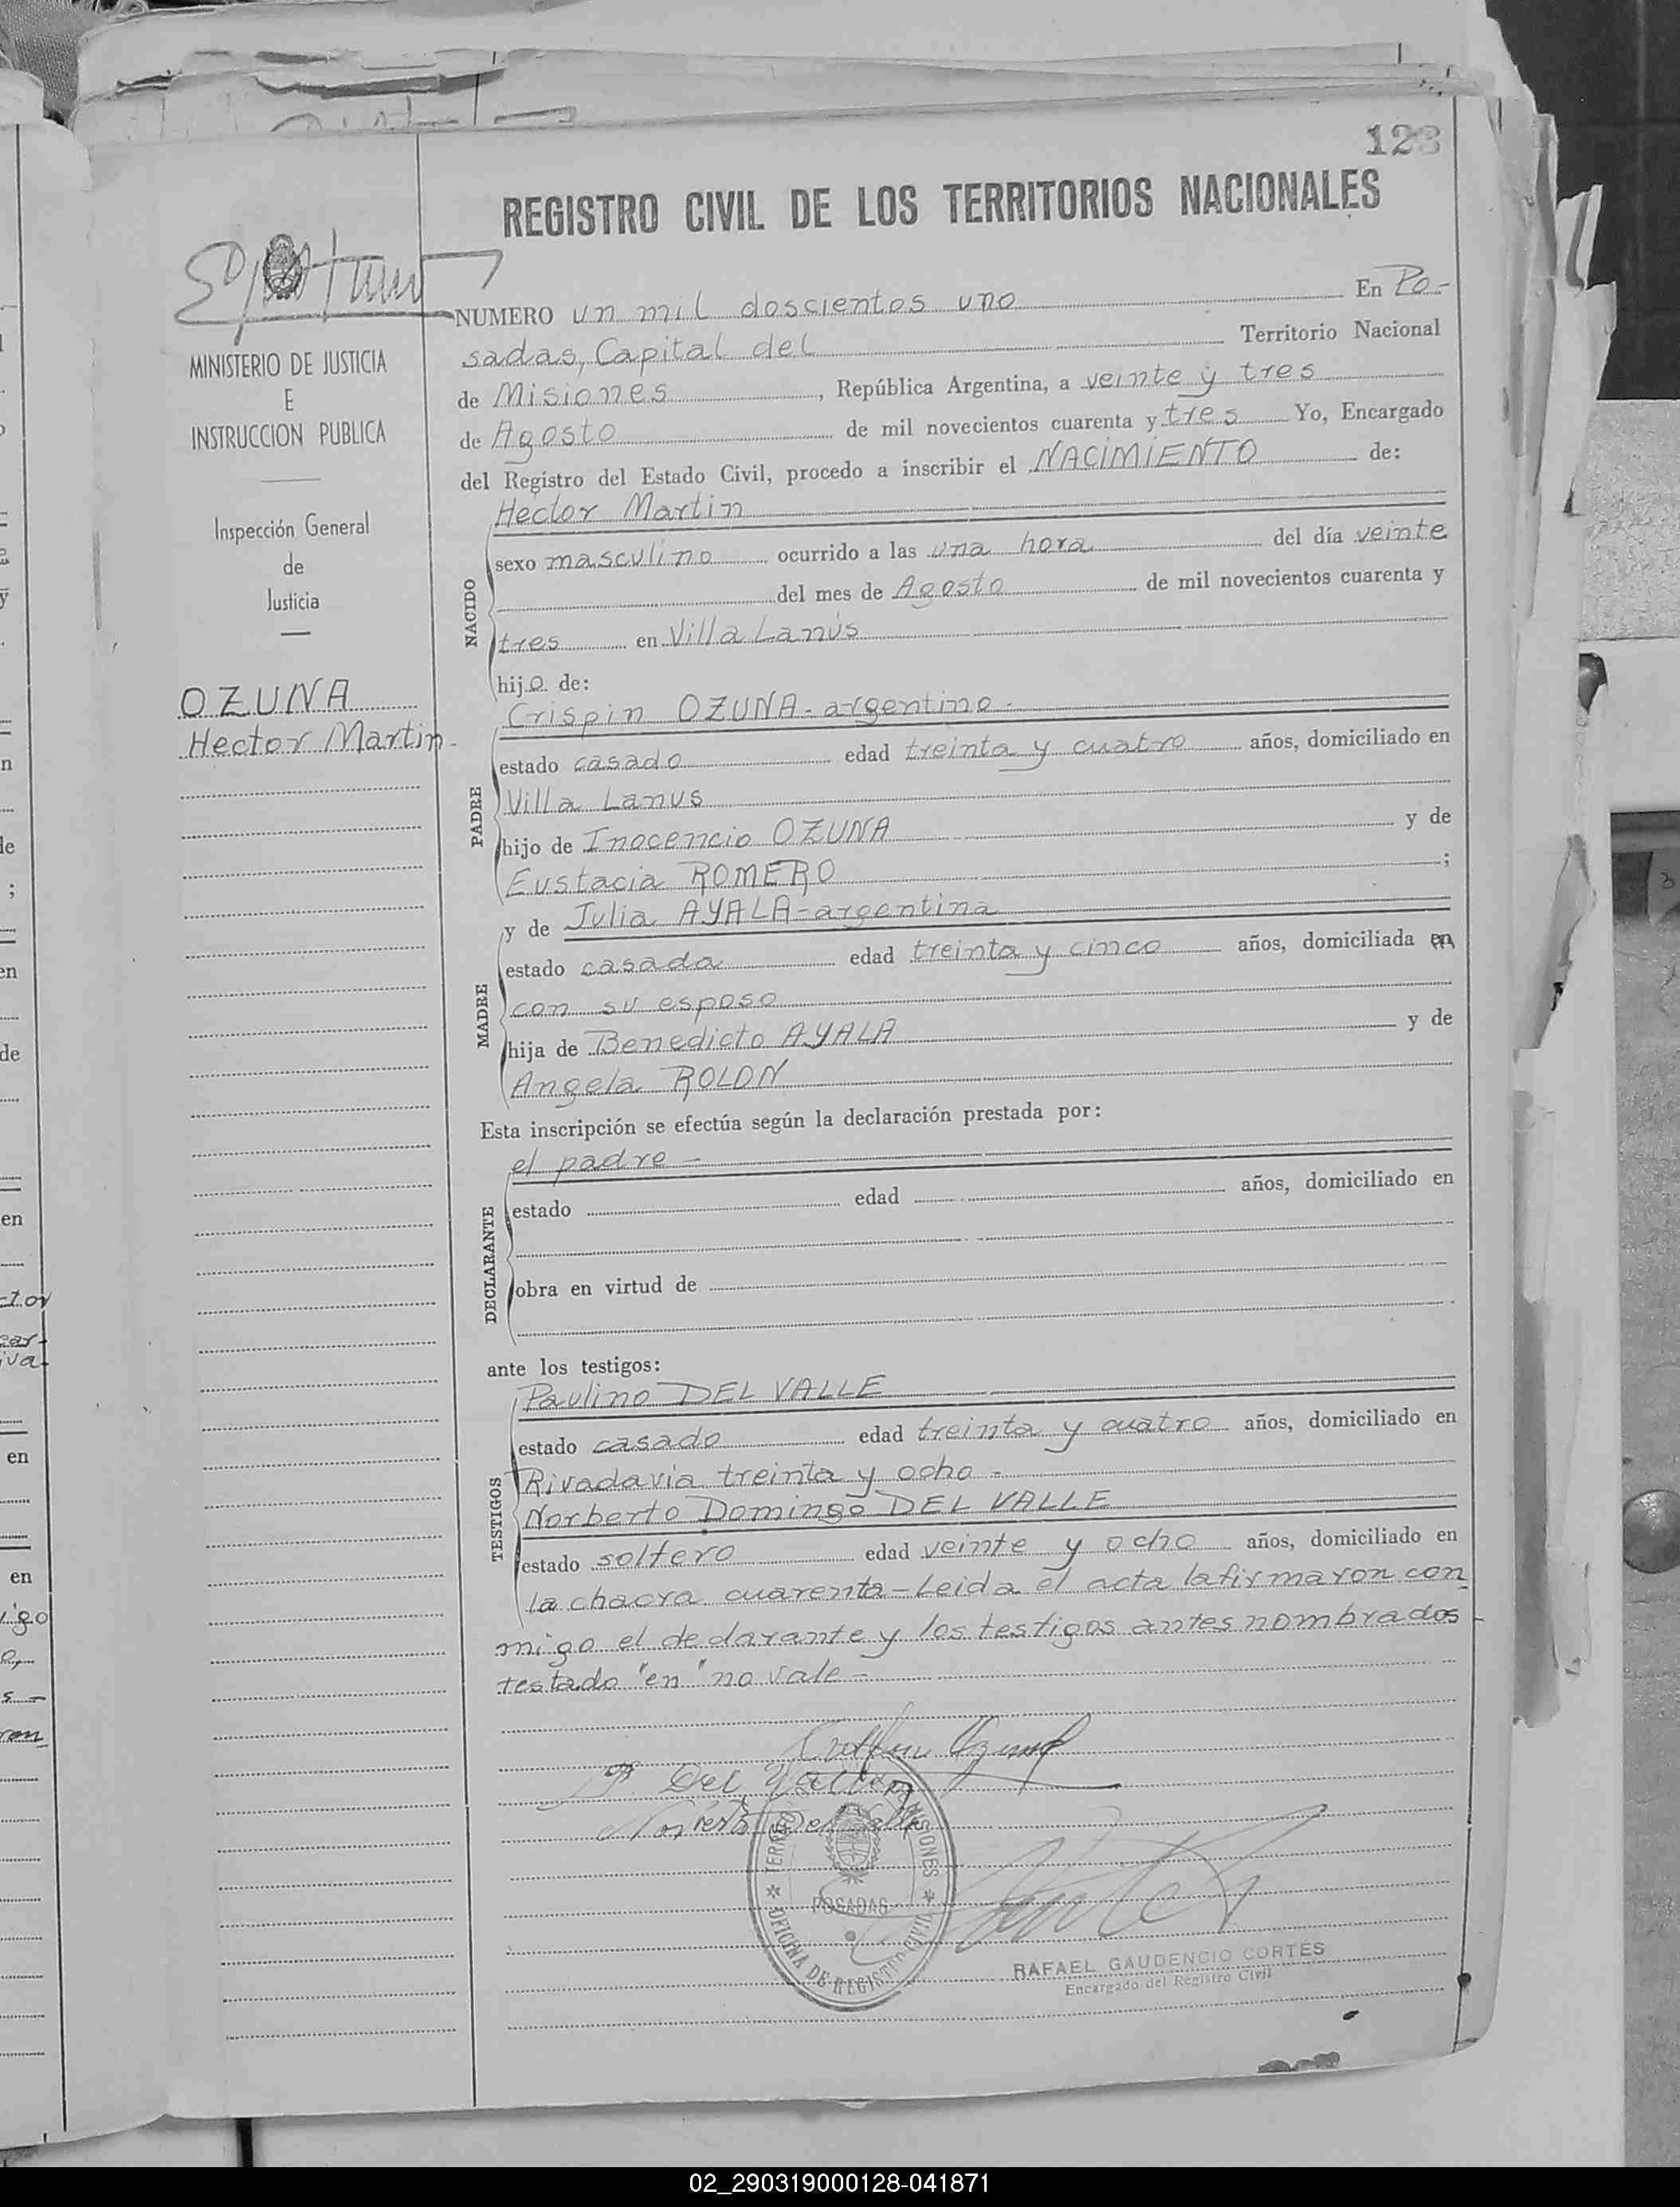 123
REGISTRO CIVIL DE LOS TERRITORIOS NACIONALES
MINISTERIO DE JUSTICIA
E
INSTRUCCION PUBLICA
Inspección General
de
Justicia
OZUNA
Hector Martin
NUMERO un mil doscientos uno En Po-
sadas, Capital del Territorio Nacional
de Misiones, República Argentina, a veinte y tres
de Agosto de mil novecientos cuarenta y tres Yo, Encargado
del Registro del Estado Civil, procedo a inscribir el NACIMIENTO de:
NACIDO
Hector Martin
sexo masculino ocurrido a las una hora del día veinte
del mes de Agosto de mil novecientos cuarenta y
tres en Villa Lanús
hijo de:
PADRE
Crispin OZUNA-argentino-
estado casado edad treinta y cuatro años, domiciliado en
Villa Lanus
hijo de Inocencio OZUNA y de
Eustacia ROMERO ;
MADRE
y de Julia AYALA-argentina
estado casada edad treinta y cinco años, domiciliada en
con su esposo
hija de Benedicto AYALA y de
Angela ROLON
Esta inscripción se efectúa según la declaración prestada por:
DECLARANTE
el padre-
estado edad años, domiciliado en
obra en virtud de
ante los testigos:
TESTIGOS
Paulino DEL VALLE
estado casado edad treinta y cuatro años, domiciliado en
Rivadavia treinta y ocho-
Norberto Domingo DEL VALLE
estado soltero edad veinte y ocho años, domiciliado en
la chacra cuarenta-Leida el acta la firmaron con
migo el declarante y los testigos antes nombrados-
testado "en" no vale-
P. Del Valle
Norberto Del Valle
MISIONES
POSADAS
OFICINA DE REGISTRO CIVIL
RAFAEL GAUDENCIO CORTES
Encargado del Registro Civil
02_290319000128-041871